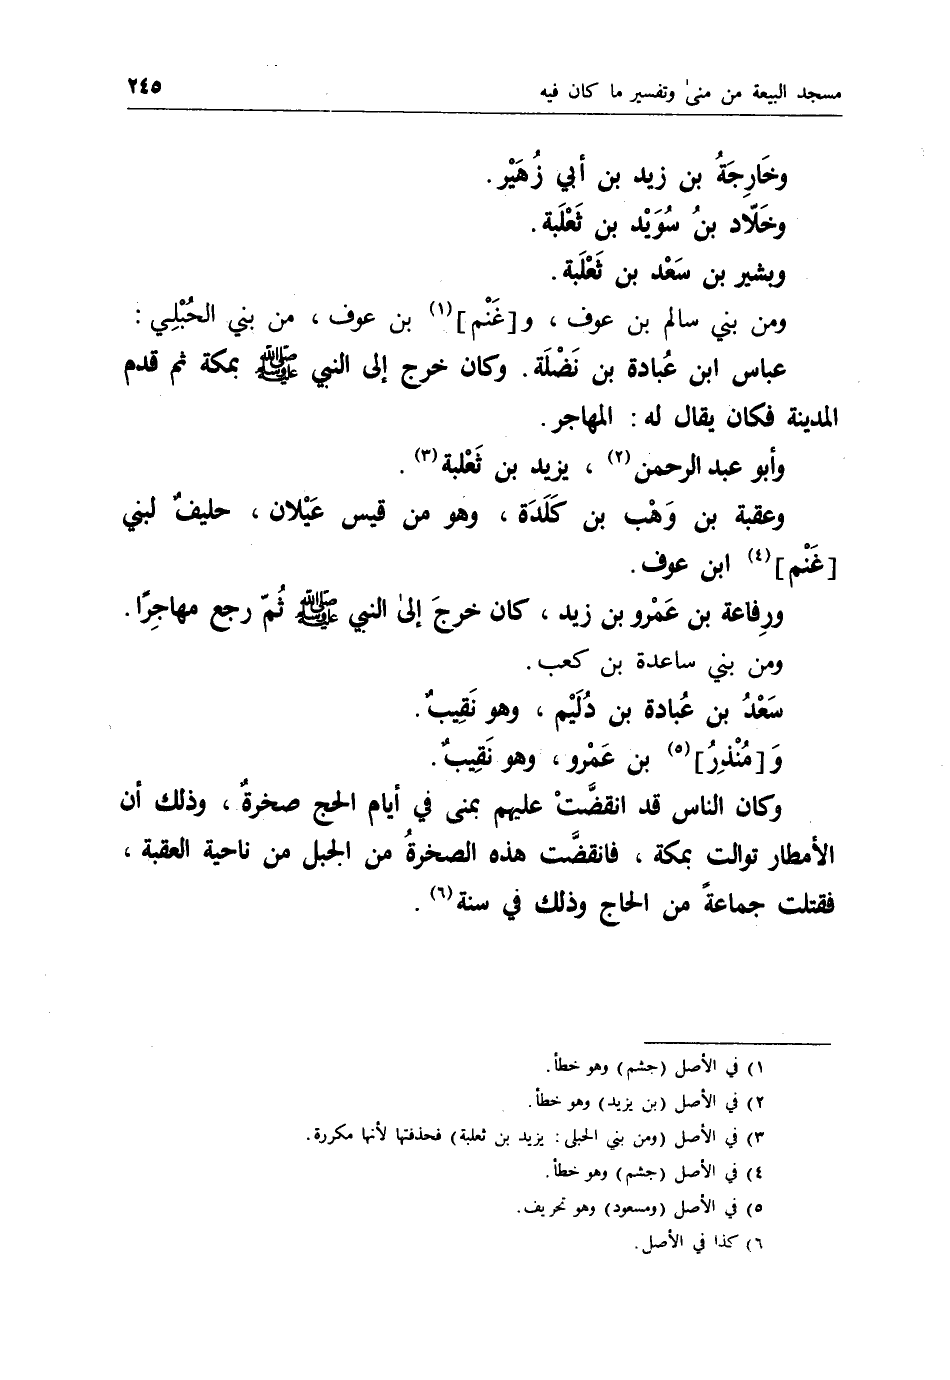 مسجد البيعة من منىٰ وتفسير ما كان فيه ٢٤٥
وخَارِجَةُ بن زيد بن أبي زُهَيْر .
وخَلّاد بنُ سُوَيْد بن ثَعْلَبة .
وبشير بن سَعْد بن ثَعْلَبة .
ومن بني سالم بن عوف ، و[غَنْم](١) بن عوف ، من بني الحُبْلِي :
عباس ابن عُبادة بن نَضْلَة . وكان خرج إلى النبي ﷺ بمكة ثم قدم
المدينة فكان يقال له : المهاجر .
وأبو عبد الرحمن(٢) ، يزيد بن ثَعْلبة(٣) .
وعقبة بن وَهْب بن كَلَدَة ، وهو من قيس عَيْلان ، حليفٌ لبني
[غَنْم](٤) ابن عوف .
ورِفاعة بن عَمْرو بن زيد ، كان خرجَ إلىٰ النبي ﷺ ثُمّ رجع مهاجِرًا .
ومن بني ساعدة بن كعب .
سَعْدُ بن عُبادة بن دُلَيْم ، وهو نَقِيبٌ .
وَ[مُنْذِرُ](٥) بن عَمْرو ، وهو نَقِيبٌ .
وكان الناس قد انقضَّتْ عليهم بمنى في أيام الحج صخرةٌ ، وذلك أن
الأمطار توالت بمكة ، فانقضَّت هذه الصخرةُ من الجبل من ناحية العقبة ،
فقتلت جماعةً من الحاج وذلك في سنة(٦) .
١) في الأصل (جشم) وهو خطأ .
٢) في الأصل (بن يزيد) وهو خطأ .
٣) في الأصل (ومن بني الحبلى : يزيد بن ثعلبة) فحذفتها لأنها مكررة .
٤) في الأصل (جشم) وهو خطأ .
٥) في الأصل (ومسعود) وهو تحريف .
٦) كذا في الأصل .